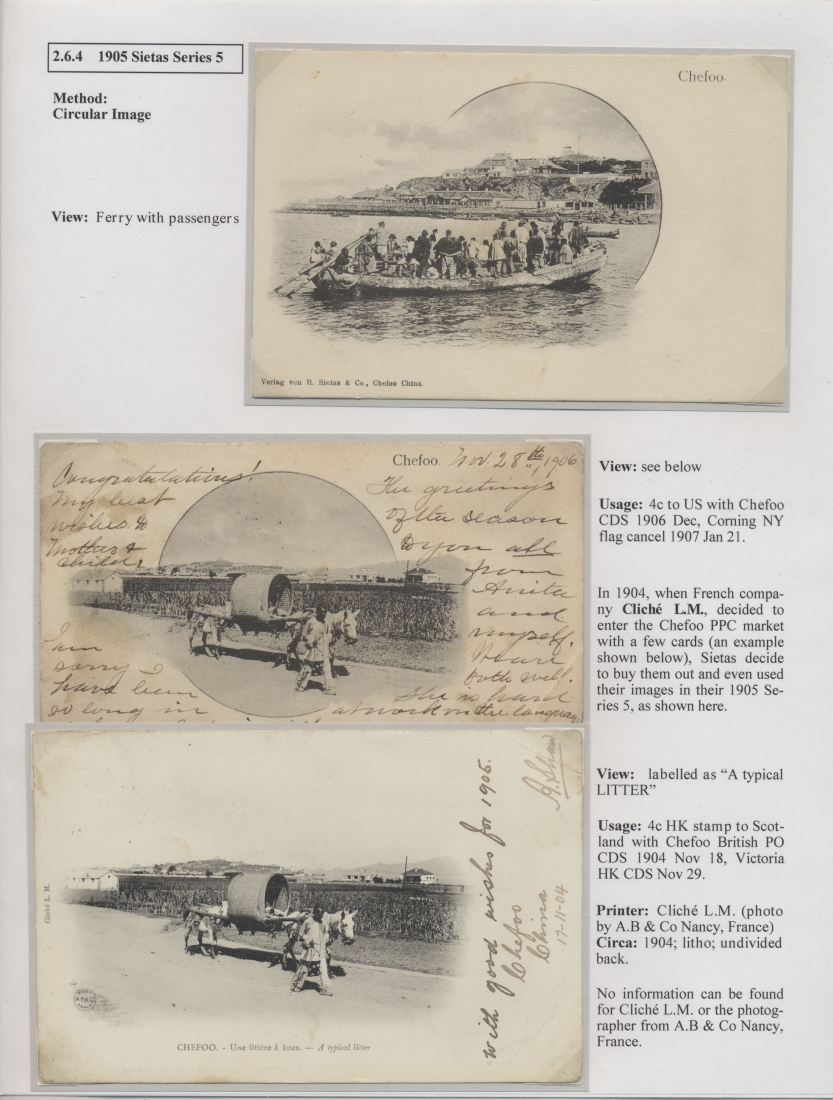 2.6.4 1905 Sietas Series 5
Method:
Circular Image
View: Ferry with passengers
Chefoo.
Verlag von H. Sietas & Co., Chefoo China
Chefoo. Nov. 28th, 1906
Congratulations!
My best
wishes to
Mother &
child.
The greetings
of the season
to you all
from
Anita
and
myself.
We are
both well.
She is hard
at work on the languag
I am
sorry I
have been
so long in
View: see below
Usage: 4c to US with Chefoo
CDS 1906 Dec, Corning NY
flag cancel 1907 Jan 21.
In 1904, when French compa-
ny Cliché L.M., decided to
enter the Chefoo PPC market
with a few cards (an example
shown below), Sietas decide
to buy them out and even used
their images in their 1905 Se-
ries 5, as shown here.
Cliché L. M.
CHEFOO. - Une litière à ânes. — A typical litter
with good wishes for 1905.
Chefoo
China
17-11-04
A. Shaw
View: labelled as “A typical
LITTER”
Usage: 4c HK stamp to Scot-
land with Chefoo British PO
CDS 1904 Nov 18, Victoria
HK CDS Nov 29.
Printer: Cliché L.M. (photo
by A.B & Co Nancy, France)
Circa: 1904; litho; undivided
back.
No information can be found
for Cliché L.M. or the photog-
rapher from A.B & Co Nancy,
France.